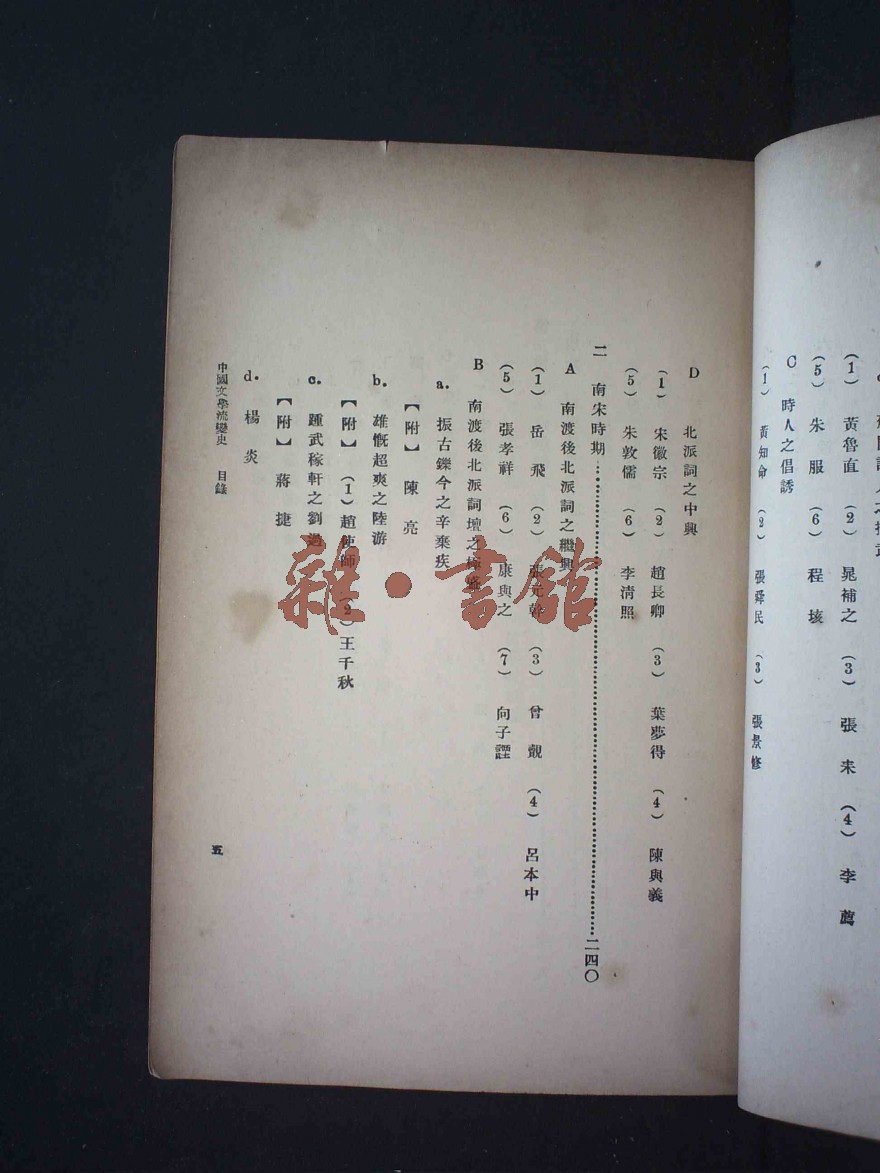 (1) 黃魯直 (2) 晁補之 (3) 張耒 (4) 李廌
(5) 朱服 (6) 程垓
C 時人之倡誘
(1) 黃知命 (2) 張舜民 (3) 張景修
D 北派詞之中興
(1) 宋徽宗 (2) 趙長卿 (3) 葉夢得 (4) 陳與義
(5) 朱敦儒 (6) 李淸照
二 南宋時期……二四〇
A 南渡後北派詞之繼興
(1) 岳飛 (2) 張元幹 (3) 曾覿 (4) 呂本中
(5) 張孝祥 (6) 康與之 (7) 向子諲
B 南渡後北派詞壇之極盛
a. 振古鑠今之辛棄疾
【附】 陳亮
b. 雄慨超爽之陸游
【附】 (1) 趙使師 (2) 王千秋
c. 踵武稼軒之劉過
【附】 蔣捷
d. 楊炎
中國文學流變史 目錄
五
雜·書館